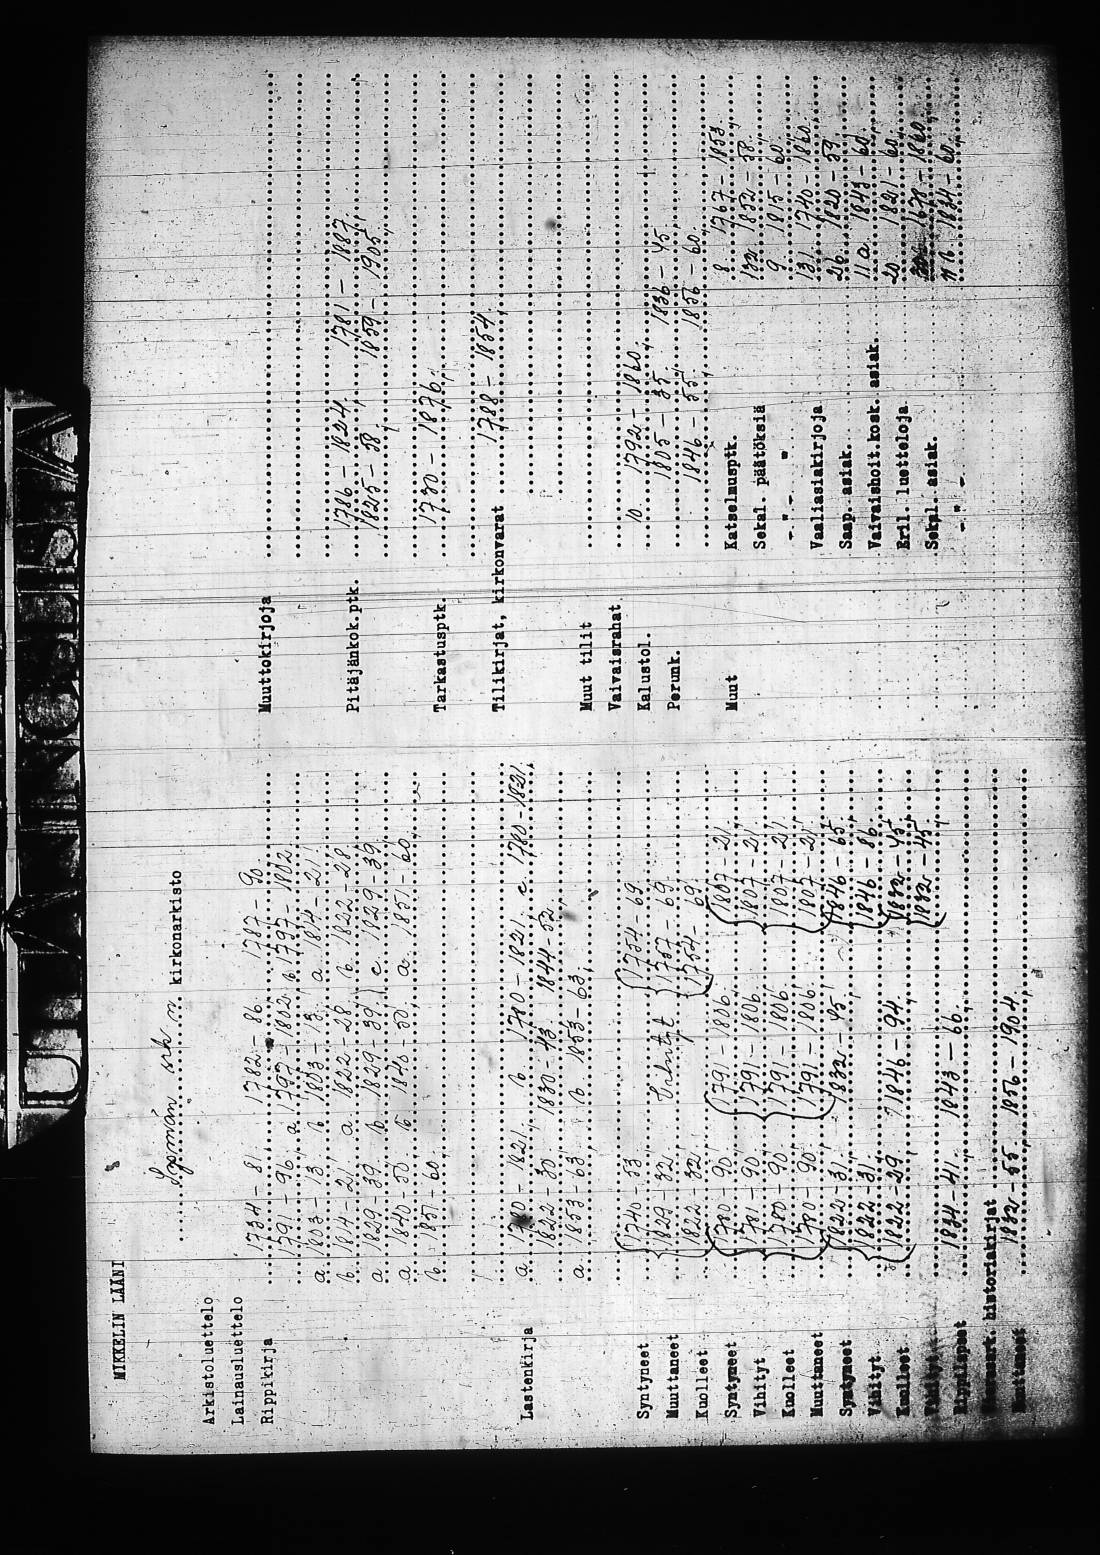 MIKKELIN LÄÄNI
Sysmän srk n kirkonarkisto
Arkistoluettelo
Lainausluettelo
Rippikirja 1734 - 81. 1782 - 86. 1787 - 90.
1791 - 96. a 1797 - 1802. b 1797 - 1802.
a 1803 - 13. b 1803 - 13. a 1814 - 21.
b 1814 - 21. a 1822 - 28. b 1822 - 28.
a 1829 - 39. b 1829 - 39. c 1829 - 39.
a 1840 - 50. b 1840 - 50. a 1851 - 60.
b 1851 - 60.
Lastenkirja a 1780 - 1821. b 1780 - 1821. c 1780 - 1821.
1822 - 30. 1830 - 43. 1844 - 52.
a 1853 - 63. b 1853 - 63.
Syntyneet 1740 - 53. 1754 - 69.
Muuttaneet 1829 - 32. Vihityt 1757 - 69.
Kuolleet 1822 - 32. 1754 - 69.
Syntyneet 1780 - 90. 1791 - 1806. 1807 - 21.
Vihityt 1781 - 90. 1791 - 1806. 1807 - 21.
Kuolleet 1780 - 90. 1791 - 1806. 1807 - 21.
Muuttaneet 1780 - 90. 1791 - 1806. 1807 - 21.
Syntyneet 1822 - 31. 1832 - 45. 1846 - 65.
Vihityt 1822 - 31. 1846 - 86.
Kuolleet 1822 - 29. 1846 - 94. 1832 - 45.
Vihityt 1832 - 45.
Rippilapset 1834 - 41. 1843 - 66.
historiakirjat
Muuttaneet 1832 - 55. 1856 - 1904.
Muuttokirjoja
Pitäjänkok.ptk. 1786 - 1824. 1781 - 1887.
1825 - 58. 1859 - 1905.
Tarkastusptk. 1730 - 1876.
Tilikirjat, kirkonvarat 1788 - 1854.
Muut tilit
Vaivaisrahat
Kalustol. 10 1792 - 1860.
Perunk. 1805 - 35. 1836 - 45.
1846 - 55. 1856 - 60.
Muut Katselmusptk. 8 1767 - 1853.
Sekal. päätöksiä 132 1832 - 58.
- " - " 9 1815 - 60.
Vaaliasiakirjoja 131 1740 - 1860.
Saap. asiak. 26 1820 - 59.
Vaivaishoit.kosk. asiak. 11 a 1843 - 60.
Eril. luetteloja 20 1821 - 60.
Sekal. asiak 1678 - 1860.
- " - " - 11 b 1824 - 60.